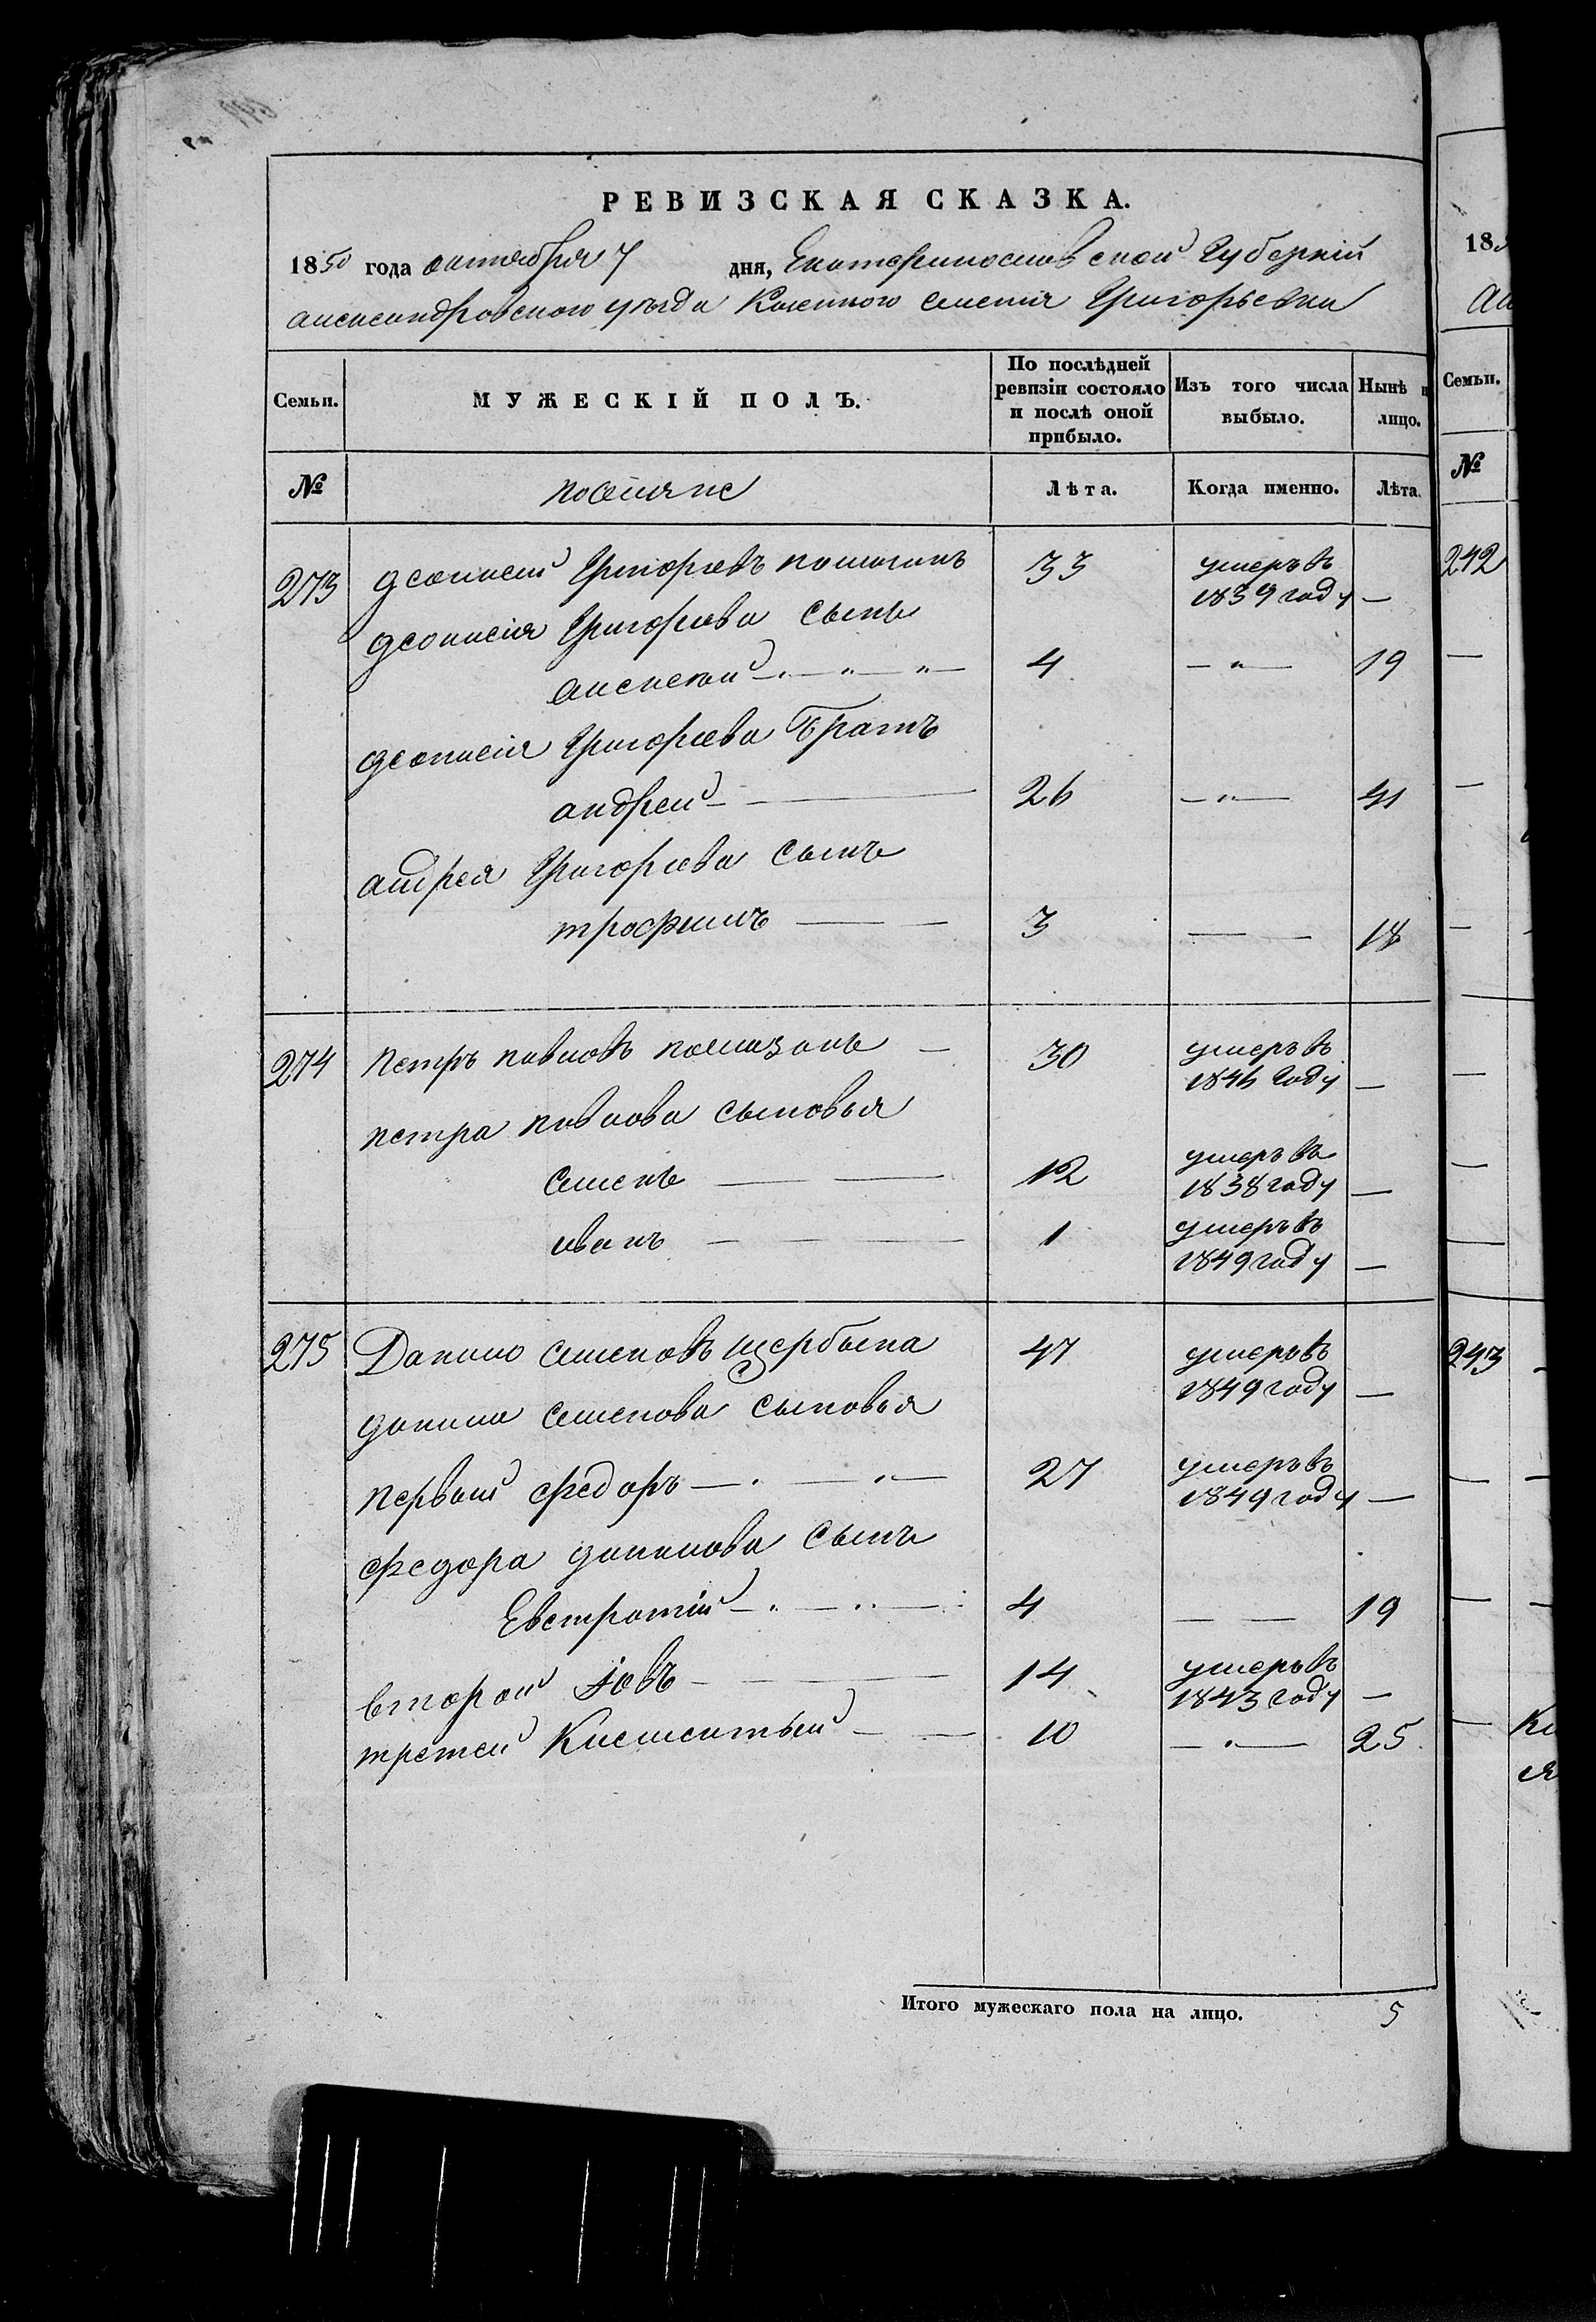 РЕВИЗСКАЯ СКАЗКА.
1850 года октября 7 дня, Екатеринославской Губерніи
александровского уѣзда Казенного селенія Григорьевки
Семьи.
МУЖЕСКІЙ ПОЛЪ.
По послѣдней ревизіи состояло и послѣ оной прибыло.
Изъ того числа выбыло.
Нынѣ н лицо.
№
поселяне
Лѣта.
Когда именно.
Лѣта.
273 деонисей Григорьевъ 33 умеръ въ 1839 году —
деонисія Григорьева сынъ
алексей 4 — 19
деонисія Григорьева братъ
андрей 26 — 41
андрея Григорьева сынъ
трофимъ 3 — 18
274 петръ павловъ 30 умеръ въ 1846 году —
петра павлова сыновья
семенъ 12 умеръ въ 1838 году —
иванъ 1 умеръ въ 1849 году —
275 Данило семеновъ щербына 47 умеръ въ 1849 году —
данила семенова сыновья
первый федоръ 27 умеръ въ 1849 году —
федора данилова сынъ
Евстратій 4 — 19
второй іовъ 14 умеръ въ 1843 году —
третей Климентый 10 — 25
Итого мужескаго пола на лицо. 5
18
Семьи.
№
242
243